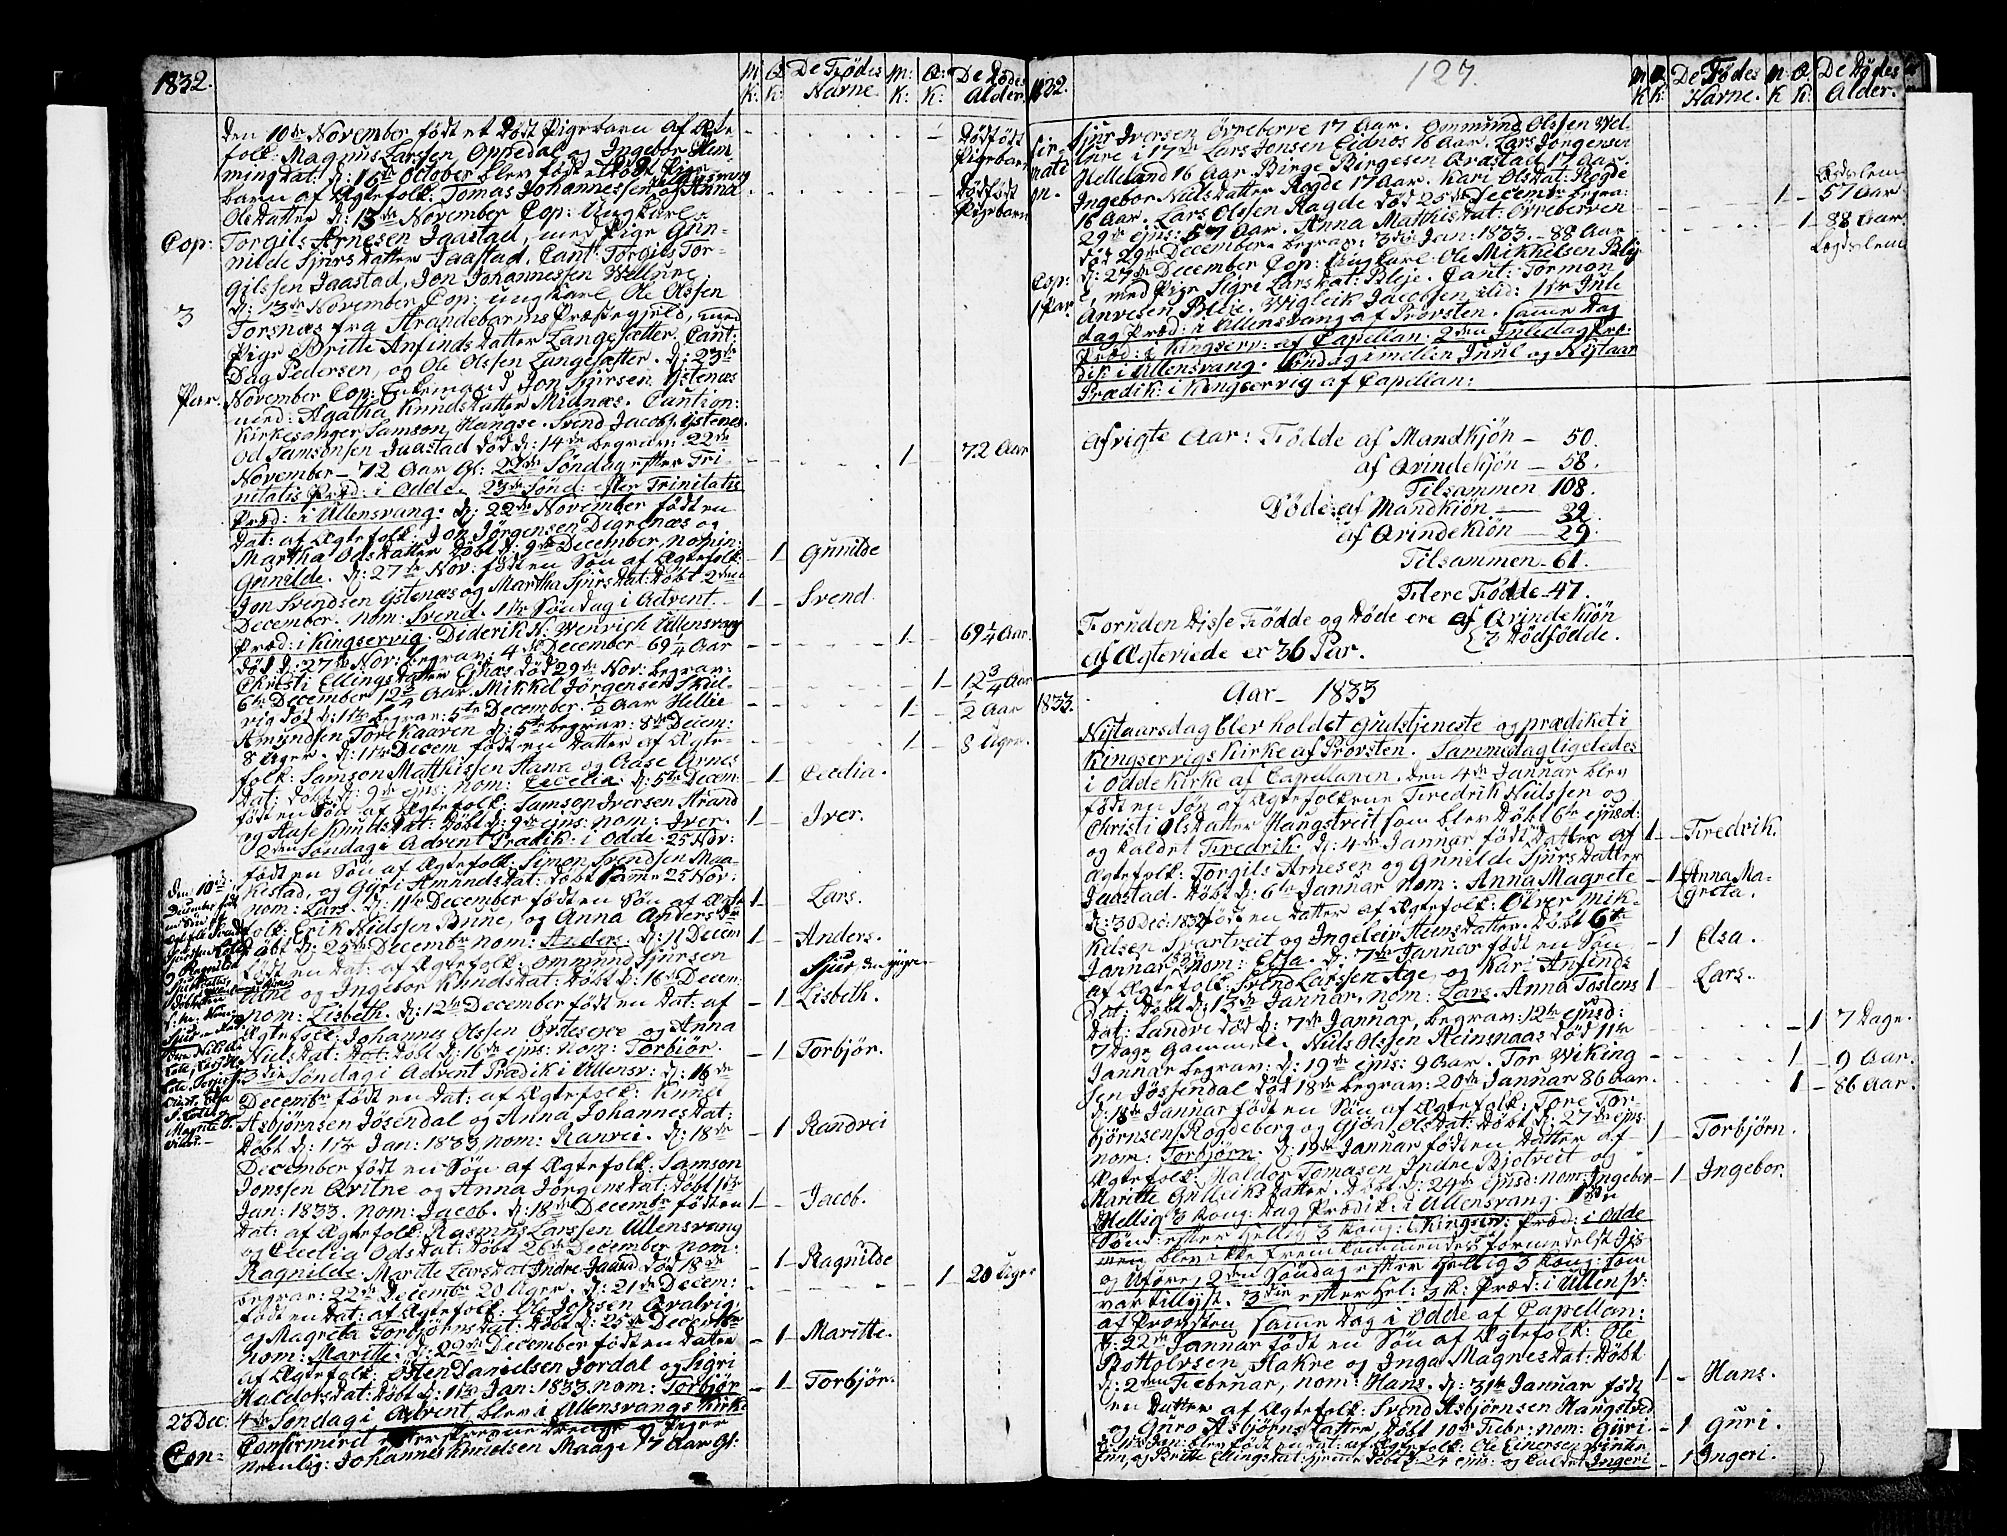 1832.
M: K: Q: K: De Fødes Navne. M: K: Q: K: De Dødes Alder.
den 10de November født et Dødt Pigebarn af Ægte
folk: Magnus Larssen Oppedal og Ingebor Flem
mingdat: d: 16de October blev født et Dødt Pige
barn af Ægtefolk: Tomas Johannessen og Anna
Ole Datter d: 13de November Cop: Ungkarl
Torgils Arnesen Jaastad, med Pige Gun-
nilde Sjurs Datter Jaastad. Caut: Torgils Tor-
gilssen Jaastad, Jon Johannessen Wellure
d: 13de November Cop: ungkarl Ole Olssen
Torsnæs fra Strandebarms Præstegjeld, med
Pige Britte Anfinds Datter Langesætter. Caut:
Dag Pedersen, og Ole Olssen Langesætter. d: 23de
November Cop: Enkemand Jon Sjursen Ystenæs
med: Agatha Knuds Datter Midnæs. Caution:
Kirkesanger Samson Hangse. Svend Jacobs: Ystenes.
Od Samsonsen Jaastad død d: 14de begrav: 22de
November – 72 Aar Gl: 22de Søndag efter Tri-
nitatis Præd: i Odde. 23de Sønd: efter Trinitatis
Præd: i Ullensvang. d: 22de November født en
Dat: af Ægtefolk: Jon Jørgensen Digrenæs og
Martha Ods Datter Døbt d: 9de December, nomin:
Gunilde. d: 27de Nov: født en Søn af Ægtefolk:
Jon Svendsen Ystenæs og Martha Sjursdat: Døbt 2den
December. nom: Svend. 1ste Søndag i Advent
Præd: i Kingservig. Diderik N: Wenrich Ullensvang
død d: 27de Nov: begrav: 4de December 69 1/4 Aar
Christi Ellings Datter Ejnæs død 29de Nov: begrav:
6te December 12 3/4 Aar. Mikkel Jørgensen Skiel-
vig død d: 1ste begrav: 5te December. 1/2 Aar Hellie
Amundsen Torekaaven d: 5te begrav: 8de Decem:
8 Uger. d: 1ste Decem født en Datter af Ægte-
folk: Samson Matthissen Hana og Aase Arnes
Dat: Døbt d: 9de ejus: nom: Cecelia. d: 5te Decem:
født en Søn af Ægtefolk: Samson Iversen Strand
og Aase Knudsdat: Døbt d: 9de ejus: nom: Iver.
2den Søndag i Advent Prædik: i Odde. 25 Nov:
født en Søn af Ægtefolk: Simon Svendsen Maa-
kestad, og Gyri Amundsdat: Døbt 25 Nov:
nom: Lars. d: 11te December født en Søn af Ægte
folk: Erik Nielssen Bnine, og Anna Anders
Døbt d: 25de Decembr nom: Anders. d: 11 Decem
født en Dat: af Ægtefolk: Ommund Sjursen
Utne og Ingebor Knudsdat: Døbt d: 16de Decem:
nom: Lisbeth. d: 12te December født en Dat: af
Ægtefolk: Johannes Olssen og Anna
Nielsdat: Døbt d: 16de ejus: nom: Torbiør.
3die Søndag i Advent Prædik i Ullensv: d: 16de
Decembr født en Dat: af Ægtefolk: Knud
Asbjørnsen Jøsendal og Anna Johannesdat:
Døbt d: 1ste Jan: 1833 nom: Ranvei. d: 18de
December født en Søn af Ægtefolk: Samson
Jonssen Qvitne og Anna Jørgensdat: Døbt 1ste
Jan: 1833. nom: Jacob. d: 18de Decembr født en
Dat: af Ægtefolk: Rasmus Larssen Ullensvang
og Cecelia Odsdat: Døbt 26de December nom:
Ragnilde. Maritte Larsdat Indre Jaastad død 18de
begrav: 22de Decembr 20 Uger. d: 21de Decem:
født en Dat: af Ægtefolk: Ole Johsen Qvalvig,
og Magreta Torbjørnsdat: Døbt d: 25de Decembr
nom: Maritte. d: 22de December født en Datter
af Ægtefolk: Østen Danielsen Jordal og Sigri
Haldorsdat: Døbt d: 1ste Jan: 1833 nom: Torbjør
4de Søndag i Advent blev i Ullensvangs Kirke
Confirmeret efterskrevne Drenge og Piger
nemlig: Johannes Knudsen Maage 17 Aar Gl:
Cop:
3
Par.
23 Dec:
Con-
Dødfødt Pigebarn
Dødfødt Pigebarn
1 72 Aar
1 Gunilde
1 Svend
1 69 1/4 Aar
1 12 3/4 Aar
1 1/2 Aar
1 8 Uger.
1 Cecelia.
1 Iver.
1 Lars.
1 Anders.
Sjur den yngre
1 Lisbeth.
1 Torbjør.
1 Randvei
1 Jacob.
1 Ragnilde
1 20 Uger
1 Maritte.
1 Torbjør.
1832.
127.
M K Q K: De Fødes Navne. M: K Q: K: De Dødes Alder.
firmation.
Sjur Iversen Øvreberre 17 Aar. Ommund Olssen Vel-
lure i 17de Lars Jonsen Eidnos 16 Aar. Lars Jørgensen
Helleland 16 Aar. Birge Birgesen Aastad 17 Aar.
Ingebor Niels Datter Rogde 17 Aar. Kari Olsdat: Rogde
16 Aar. Lars Olssen Ragde død 25de Decembr begra:
29de ejus: 57 Aar. Anna Matthisdat: Øvreberven
død 29de December begrav: 3die Jan: 1833. – 88 Aar
d: 27de December Cop: Ungkarl Ole Mikkelsen Blije
, med Pige Sigri Larsdat: Bleje. Caut: Tormon
Anvesen Bleje. Wigleik Jacobsen, ibid: 1ste Jule
dag Præd: i Ullensvang af Provsten. samme Dag
Præd: i Kingserv: af Capellan: 2den Juledag Præ:
dik i Ullensvang. Søndag imellem Juul og Nytaar
Prædik: i Kingservig af Capellan:
Cop:
1 Par.
Lægdslem
1 57 Aar
1 88 Aar
Lægdslem
afvigte Aar: Fødde af Mandkjøn – 50.
af Qvindekjøn – 58.
Tilsammen 108.
Døde: af Mandkjøn — 32.
af Qvindekjøn — 29.
Tilsammen – 61.
Flere Fødde – 47.
Foruden disse Fødde og Døde ere af Qvindekjøn
2 Dødfødde.
af Ægteviede er 36 Par.
1833.
Aar – 1833
Nytaarsdag blev holdet Gudstjeneste og prædiket i
Kingservigs Kirke af Provsten. Sammedag ligeledes
i Odde Kirke af Capellanen. den 4de Januar blev
født en Søn af Ægtefolkene Fredrik Nielssen og
Christi Ols Datter Haugstveit som blev Døbt 6te ejusd:
og kaldet Fredrik. d: 4de Januar født en Datter af
Ægtefolk: Torgils Arnesen og Gunilde Sjurs Datter
Jaastad. Døbt d: 6te Januar nom: Anna Magrete
d: 30 Dec: 1832 født en Datter af Ægtefolk: Oiver Mik-
kelsen Svartveit og Ingeleiv Steens Datter. Døbt 6te
Januar 1833 nom: Elsa. d: 7de Januar født en Søn
af Ægtefolk: Svend Larssen Age, og Kari Anfinds
Dat: Døbt d: 13de Januar, nom: Lars. Anna Tostens
Dat: Sandve død d: 7de Januar, begrav: 12te ejusd:
7 Dage Gammel. Niels Olssen Reinsnaas død 11te
Januar begrav: d: 19de ejus: 9 Aar. Tor Wiking
sen Jøssendal død 18de begrav: 20de Januar 86 Aar.
d: 18de Januar født en Søn af Ægtefolk: Tore Tor-
bjørnsen Rogdeberg og Gjøa Olsdat: Døbt d: 27de ejus:
nom: Torbjørn. d: 19de Januar født en Datter af
Ægtefolk: Haldor Tomasen Indre Bjotveit og
Maritte Gulleiks Datter. Døbt d: 24de ejusd: nom: Ingebor
Hellig 3 Kong: Dag Prædik: i Ullensvang. 1ste
Sønd: efter Hellig 3 Kong: i Kingserv: Præd: i Odde
men blev ikke fremkommendes formedelst Iis
og Uføre, 2den Søndag efter Hellig 3 Kong: som
var tillyst. 3die efter Hel: 3 K: Præd: i Ullensv:
af Provsten samme Dag i Odde af Capellan:
d: 22de Januar født en Søn af Ægtefolk: Ole
Bottolvsen Hakre og Inga Magnesdat: Døbt
d: 2den Februar, nom: Hans. d: 31te Januar født
en Datter af Ægtefolk: Svend Asbjørnsen Haugstved
og Guro Asbjørns Datter, Døbt 10de Febr: nom: Gyri
Jan: blev født en Dat: af Ægtefolk: Ole Einersen
og Britte Ellingsdat: hjemedøbt d: 24 ejus: og kaldet Ingeri
1 Fredrik.
1 Anna Ma-
greta.
1 Elsa.
1 Lars.
1 7 Dage.
1 9 Aar.
1 86 Aar.
1 Torbjørn.
1 Ingebor.
1 Hans.
1 Guri.
1 Ingeri.